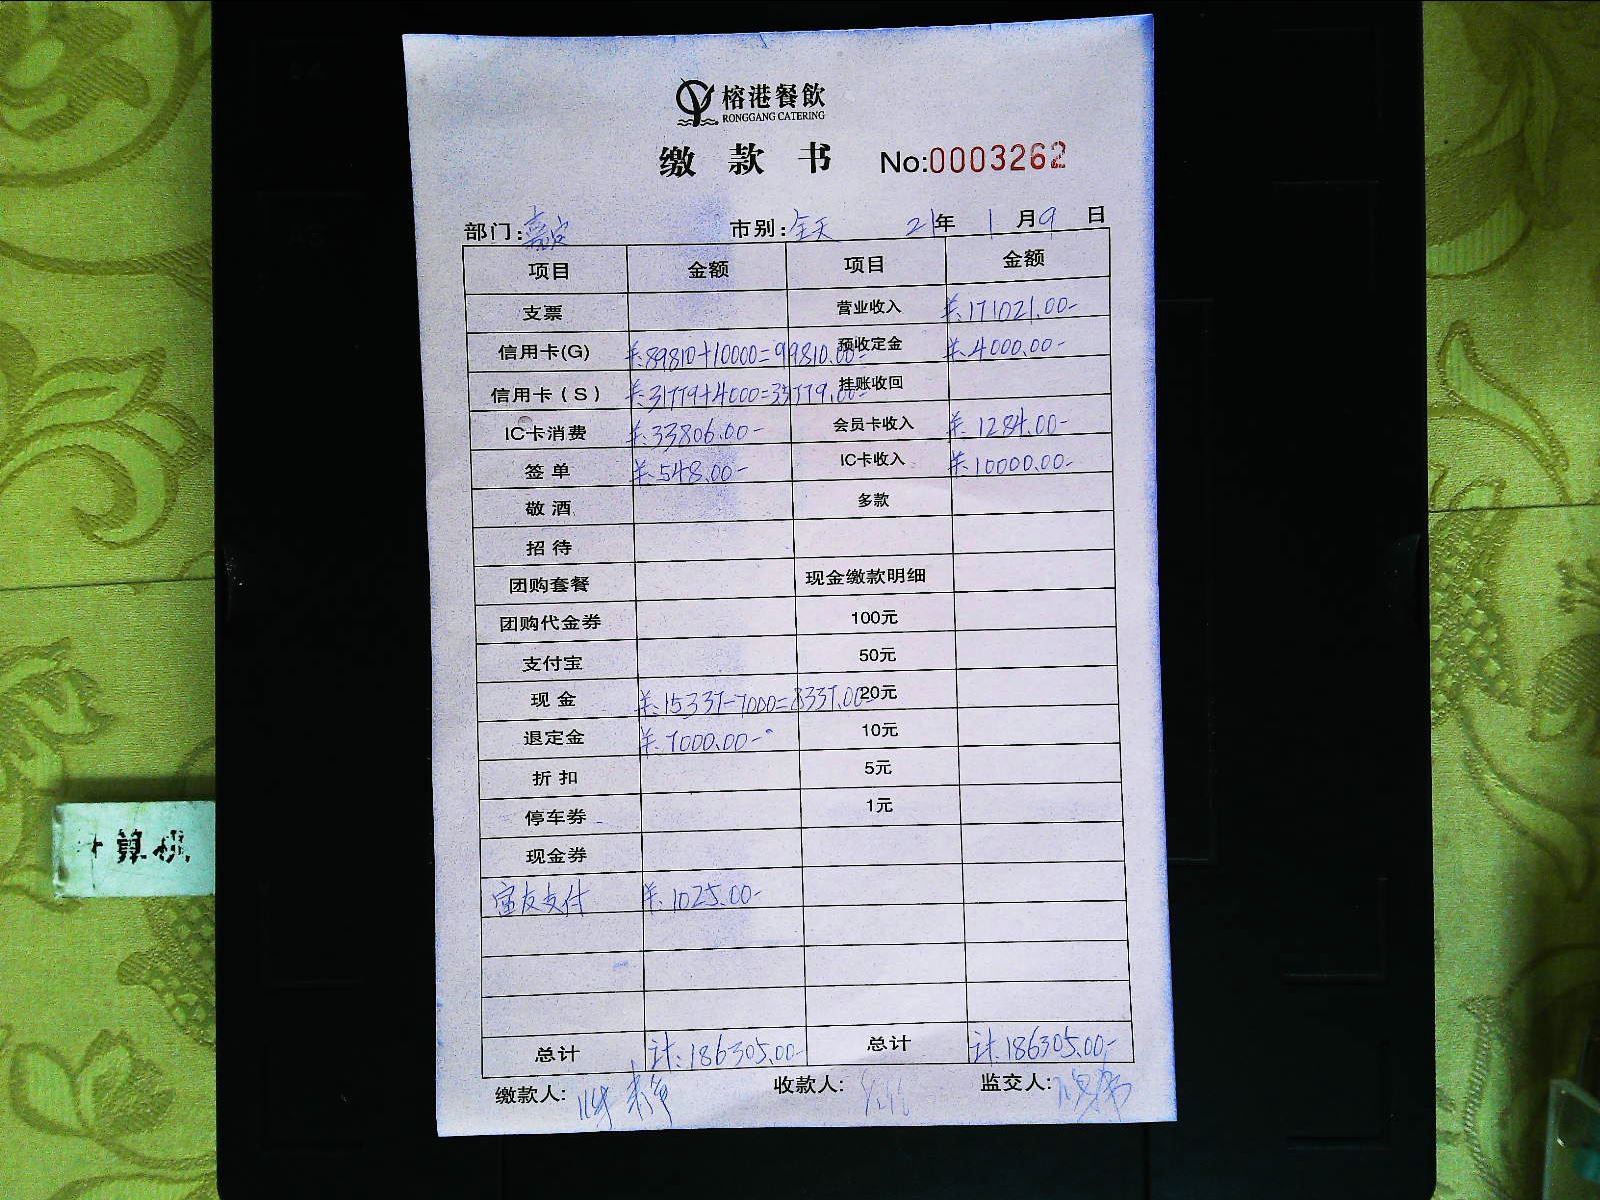 榕港餐飲
RONGGANG CATERING
缴款书 No:0003262
部门:嘉定 市别:全天 21年1月9日
项目 金额 项目 金额
支票 营业收入 ¥171021.00-
信用卡(G) ¥89810+10000=99810.00- 预收定金 ¥4000.00-
信用卡(S) ¥31779+4000=35779.00- 挂账收回
IC卡消费 ¥33806.00- 会员卡收入 ¥1284.00-
签单 ¥548.00- IC卡收入 ¥10000.00-
敬酒 多款
招待
团购套餐 现金缴款明细
团购代金券 100元
支付宝 50元
现金 ¥15337-7000=8337.00- 20元
退定金 ¥7000.00- 10元
折扣 5元
停车券 1元
现金券
富友支付 ¥1025.00-
总计 计:186305.00- 总计 计:186305.00-
缴款人: 收款人: 监交人:
计算机